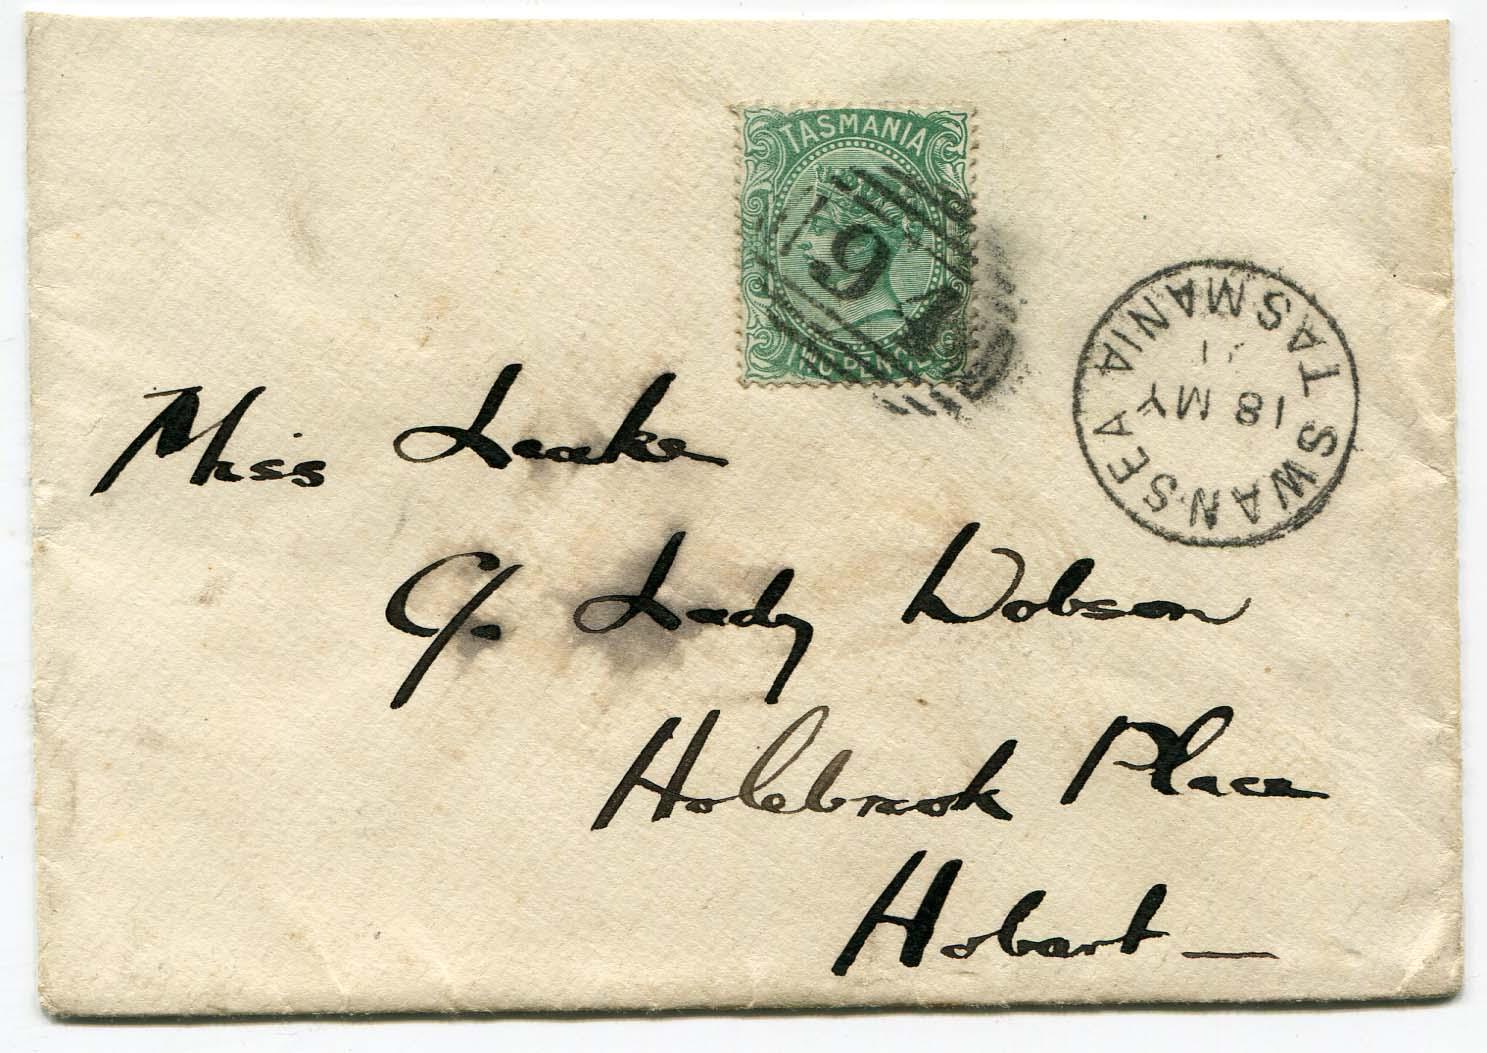 TASMANIA
TWO PENCE
SWANSEA TASMANIA
18 MY
Miss Leake
C/o Lady Dobson
Holebrook Place
Hobart —